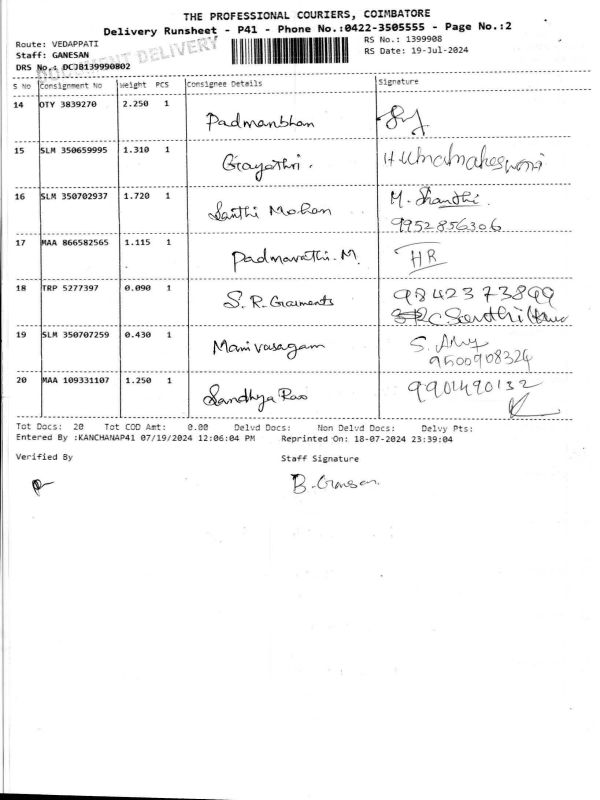 THE PROFESSIONAL COURIERS, COIMBATORE
Delivery Runsheet - P41 - Phone No.:0422-3505555 - Page No.:2
Route: VEDAPPATI
Staff: GANESAN
DRS No.: DCJB139990802
DOCUMENT DELIVERY
RS No.: 1399908
RS Date: 19-Jul-2024
S No Consignment No Weight PCS Consignee Details Signature
14 OTY 3839270 2.250 1 Padmanbhan
15 SLM 350659995 1.310 1 Gayathri. H. Umamaheswari
16 SLM 350702937 1.720 1 Santhi Mohan M. Shanthi.
9952856306
17 MAA 866582565 1.115 1 Padmavathi. M. HR
18 TRP 5277397 0.090 1 S. R. Garments 9842373899
19 SLM 350707259 0.430 1 Manivasagam
9500908324
20 MAA 109331107 1.250 1 Sandhya Rao 9901490132
Tot Docs: 20 Tot COD Amt: 0.00 Delvd Docs: Non Delvd Docs: Delvy Pts:
Entered By :KANCHANAP41 07/19/2024 12:06:04 PM Reprinted On: 18-07-2024 23:39:04
Verified By Staff Signature